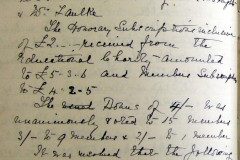 & Mr. Faulke
The Honorary Subscriptions inclusive
of £2 .... received from the
Educational Charity amounted
to £5-3-6 and Members Subscripts
to £4-2-5
The usual Doans of 4/- was
unanimously voted to 15 members
3/- to 9 members & 2/- to 1 member
It was resolved that the following